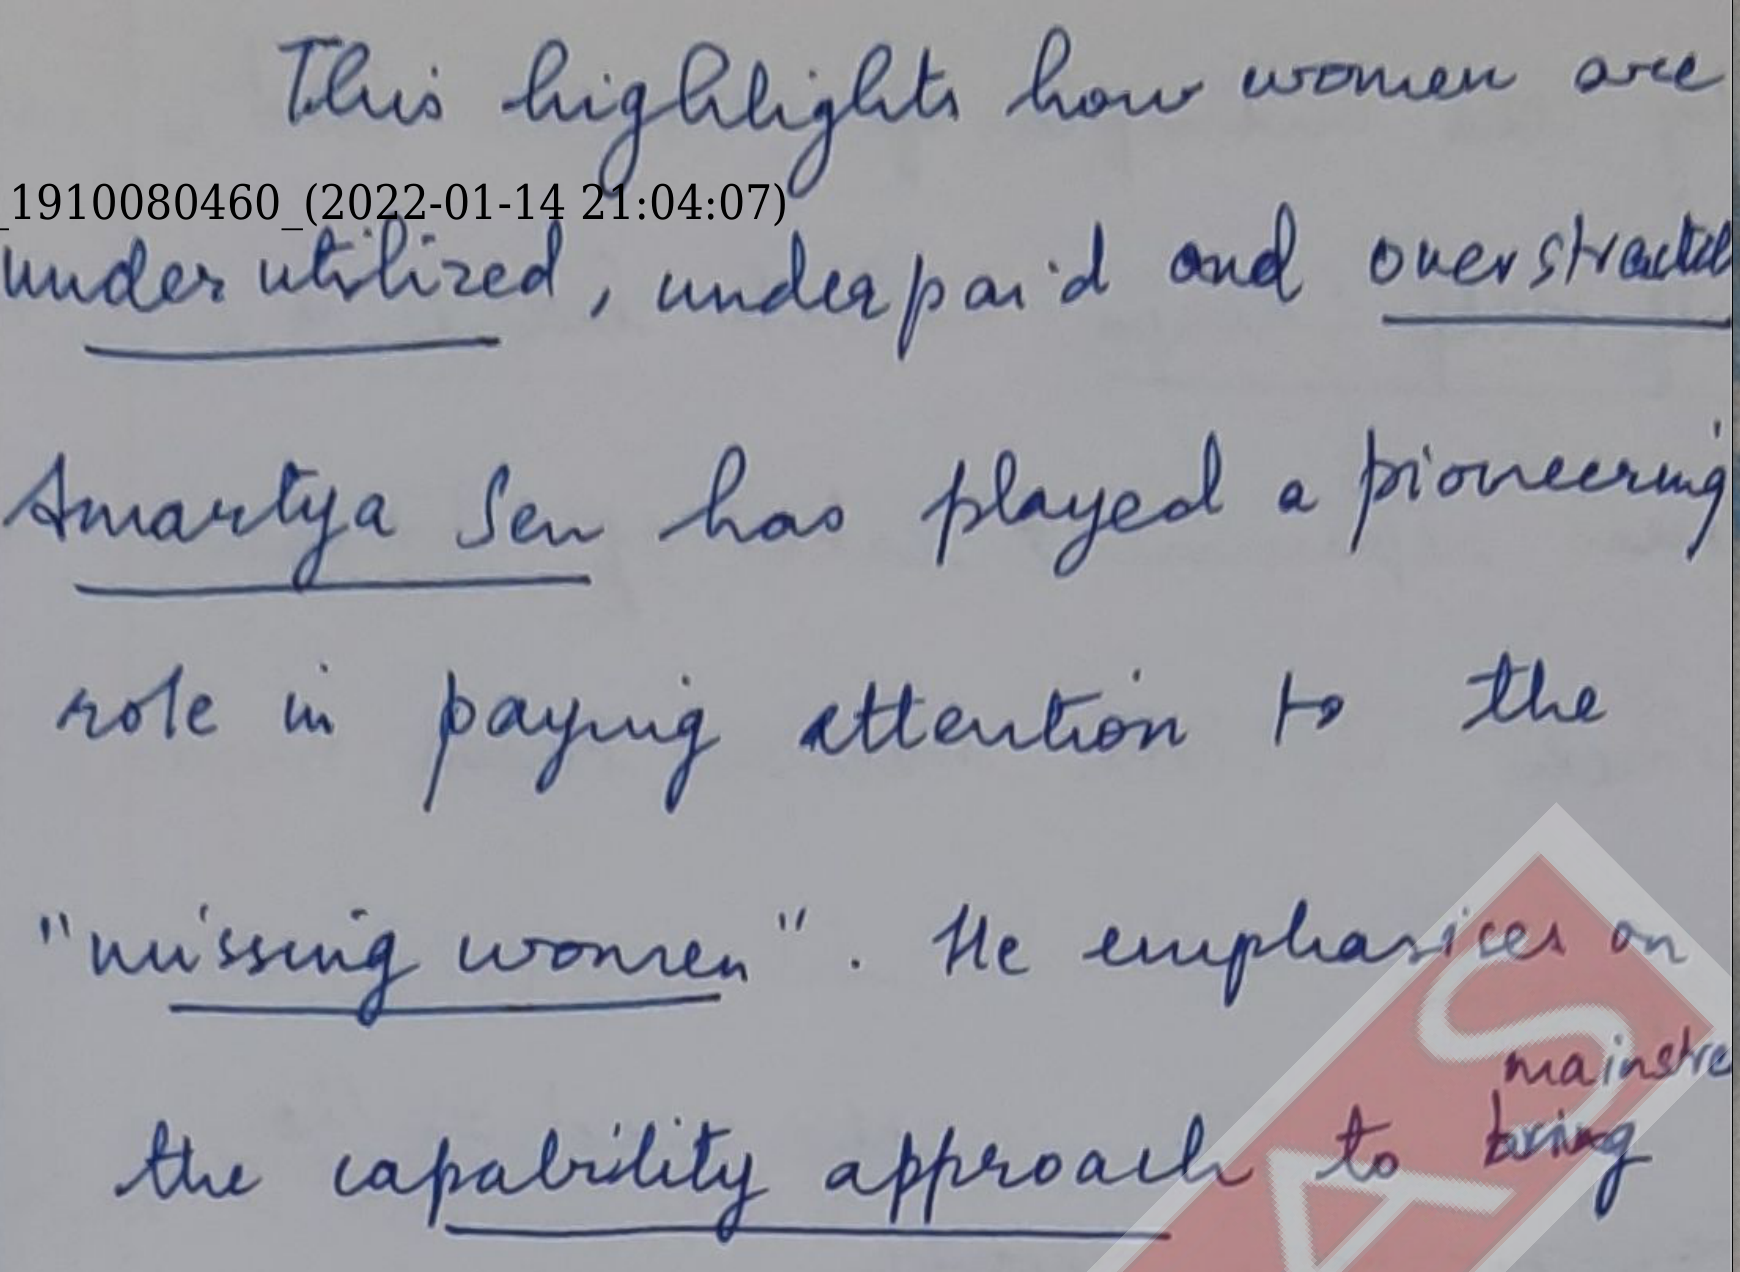 This highlights how women are
_1910080460_(2022-01-14 21:04:07)
underutilized, underpaid and
Amartya Sen has played a pioneering
role in paying attention to the
"missing women". He emphasices on
mainstre
the capability approach to bring
AS